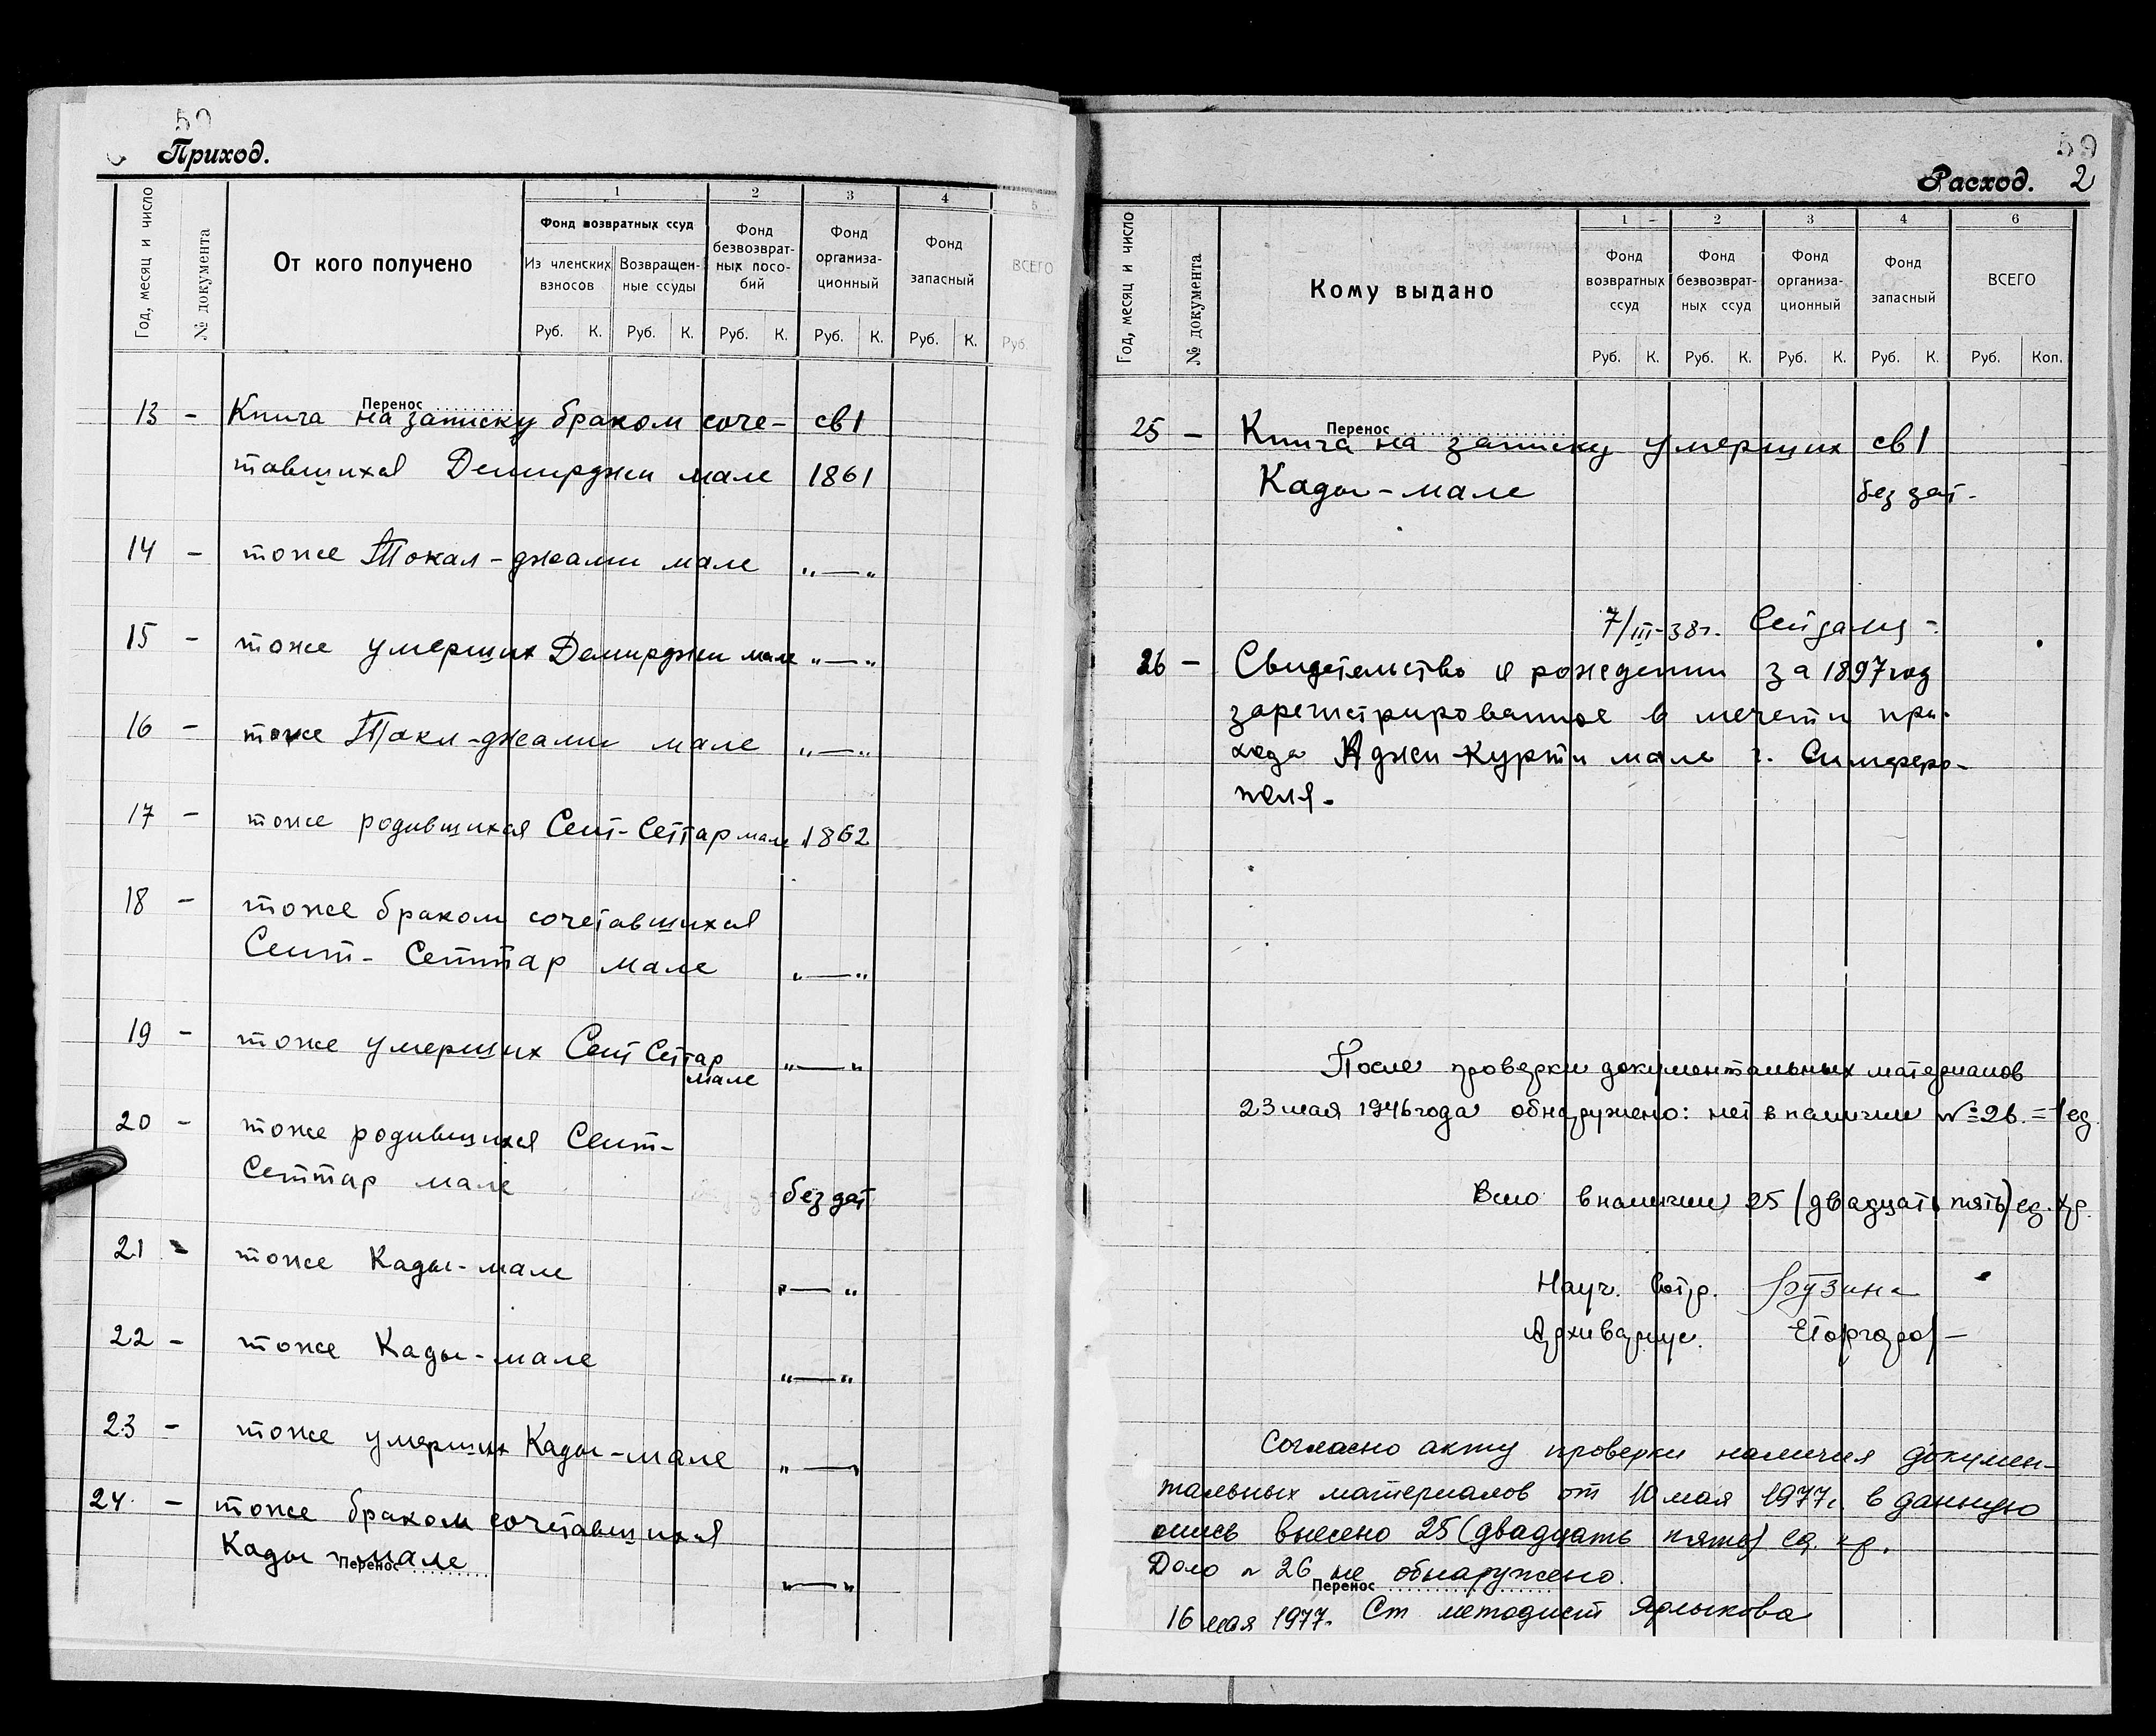 59
Приход.
Год, месяц и число
№ документа
От кого получено
1
Фонд возвратных ссуд
Из членских взносов
Возвращен-
ные ссуды
2
Фонд
безвозврат-
ных посо-
бий
3
Фонд
организа-
ционный
4
Фонд
запасный
5
ВСЕГО
Руб. К. Руб. К. Руб. К. Руб. К. Руб. К. Руб.
Перенос
13 - Книга на записку браком соче- св 1
тавшихся Демирджи мале 1861
14 - тоже Токал-джами мале „—„
15 - тоже умерших Демирджи мале „—„
16 - тоже Токл-джами мале „—„
17 - тоже родившихся Сеит-Сеттар мале 1862
18 - тоже браком сочетавшихся
Сеит-Сеттар мале „—„
19 - тоже умерших Сеит Сеттар
мале „—„
20 - тоже родившихся Сеит-
Сеттар мале без дат
21 - тоже Кады-мале „—„
22 - тоже Кады-мале „—„
23 - тоже умерших Кады-мале „—„
24 - тоже браком сочетавшихся
Кады-мале „—„
Перенос
59
Расход. 2
Год, месяц и число
№ документа
Кому выдано
1
Фонд
возвратных
ссуд
2
Фонд
безвозврат-
ных ссуд
3
Фонд
организа-
ционный
4
Фонд
запасный
6
ВСЕГО
Руб. К. Руб. К. Руб. К. Руб. К. Руб. Коп.
Перенос
25 - Книга на записку умерших св 1
Кады-мале без дат-
7/III-38г.
26 - Свидетельство о рождении за 1897 год
зарегистрированное в мечети при-
хода Аджи-Курти мале г. Симферо-
поля.
После проверки документальных материалов
23 мая 1946 года обнаружено: нет в наличии №26. = 1 ед.
Всего в наличии 25 (двадцать пять) ед. хр.
Науч. сотр.
Архивариус.
Согласно акту проверки наличия докумен-
тальных материалов от 10 мая 1977г. в данную
опись внесено 25 (двадцать пять) ед. хр.
Дело № 26 не обнаружено.
Перенос
16 мая 1977г. Ст методист Ярлыкова